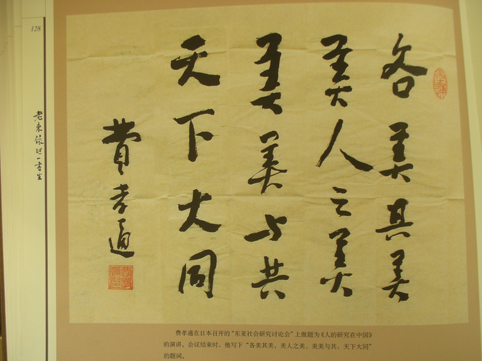 各美其美
美人之美
美美与共
天下大同
費孝通
费孝通在日本召开的“东亚社会研究讨论会”上做题为《人的研究在中国》
的演讲，会议结束时，他写下“各美其美，美人之美，美美与共，天下大同”
的题词。